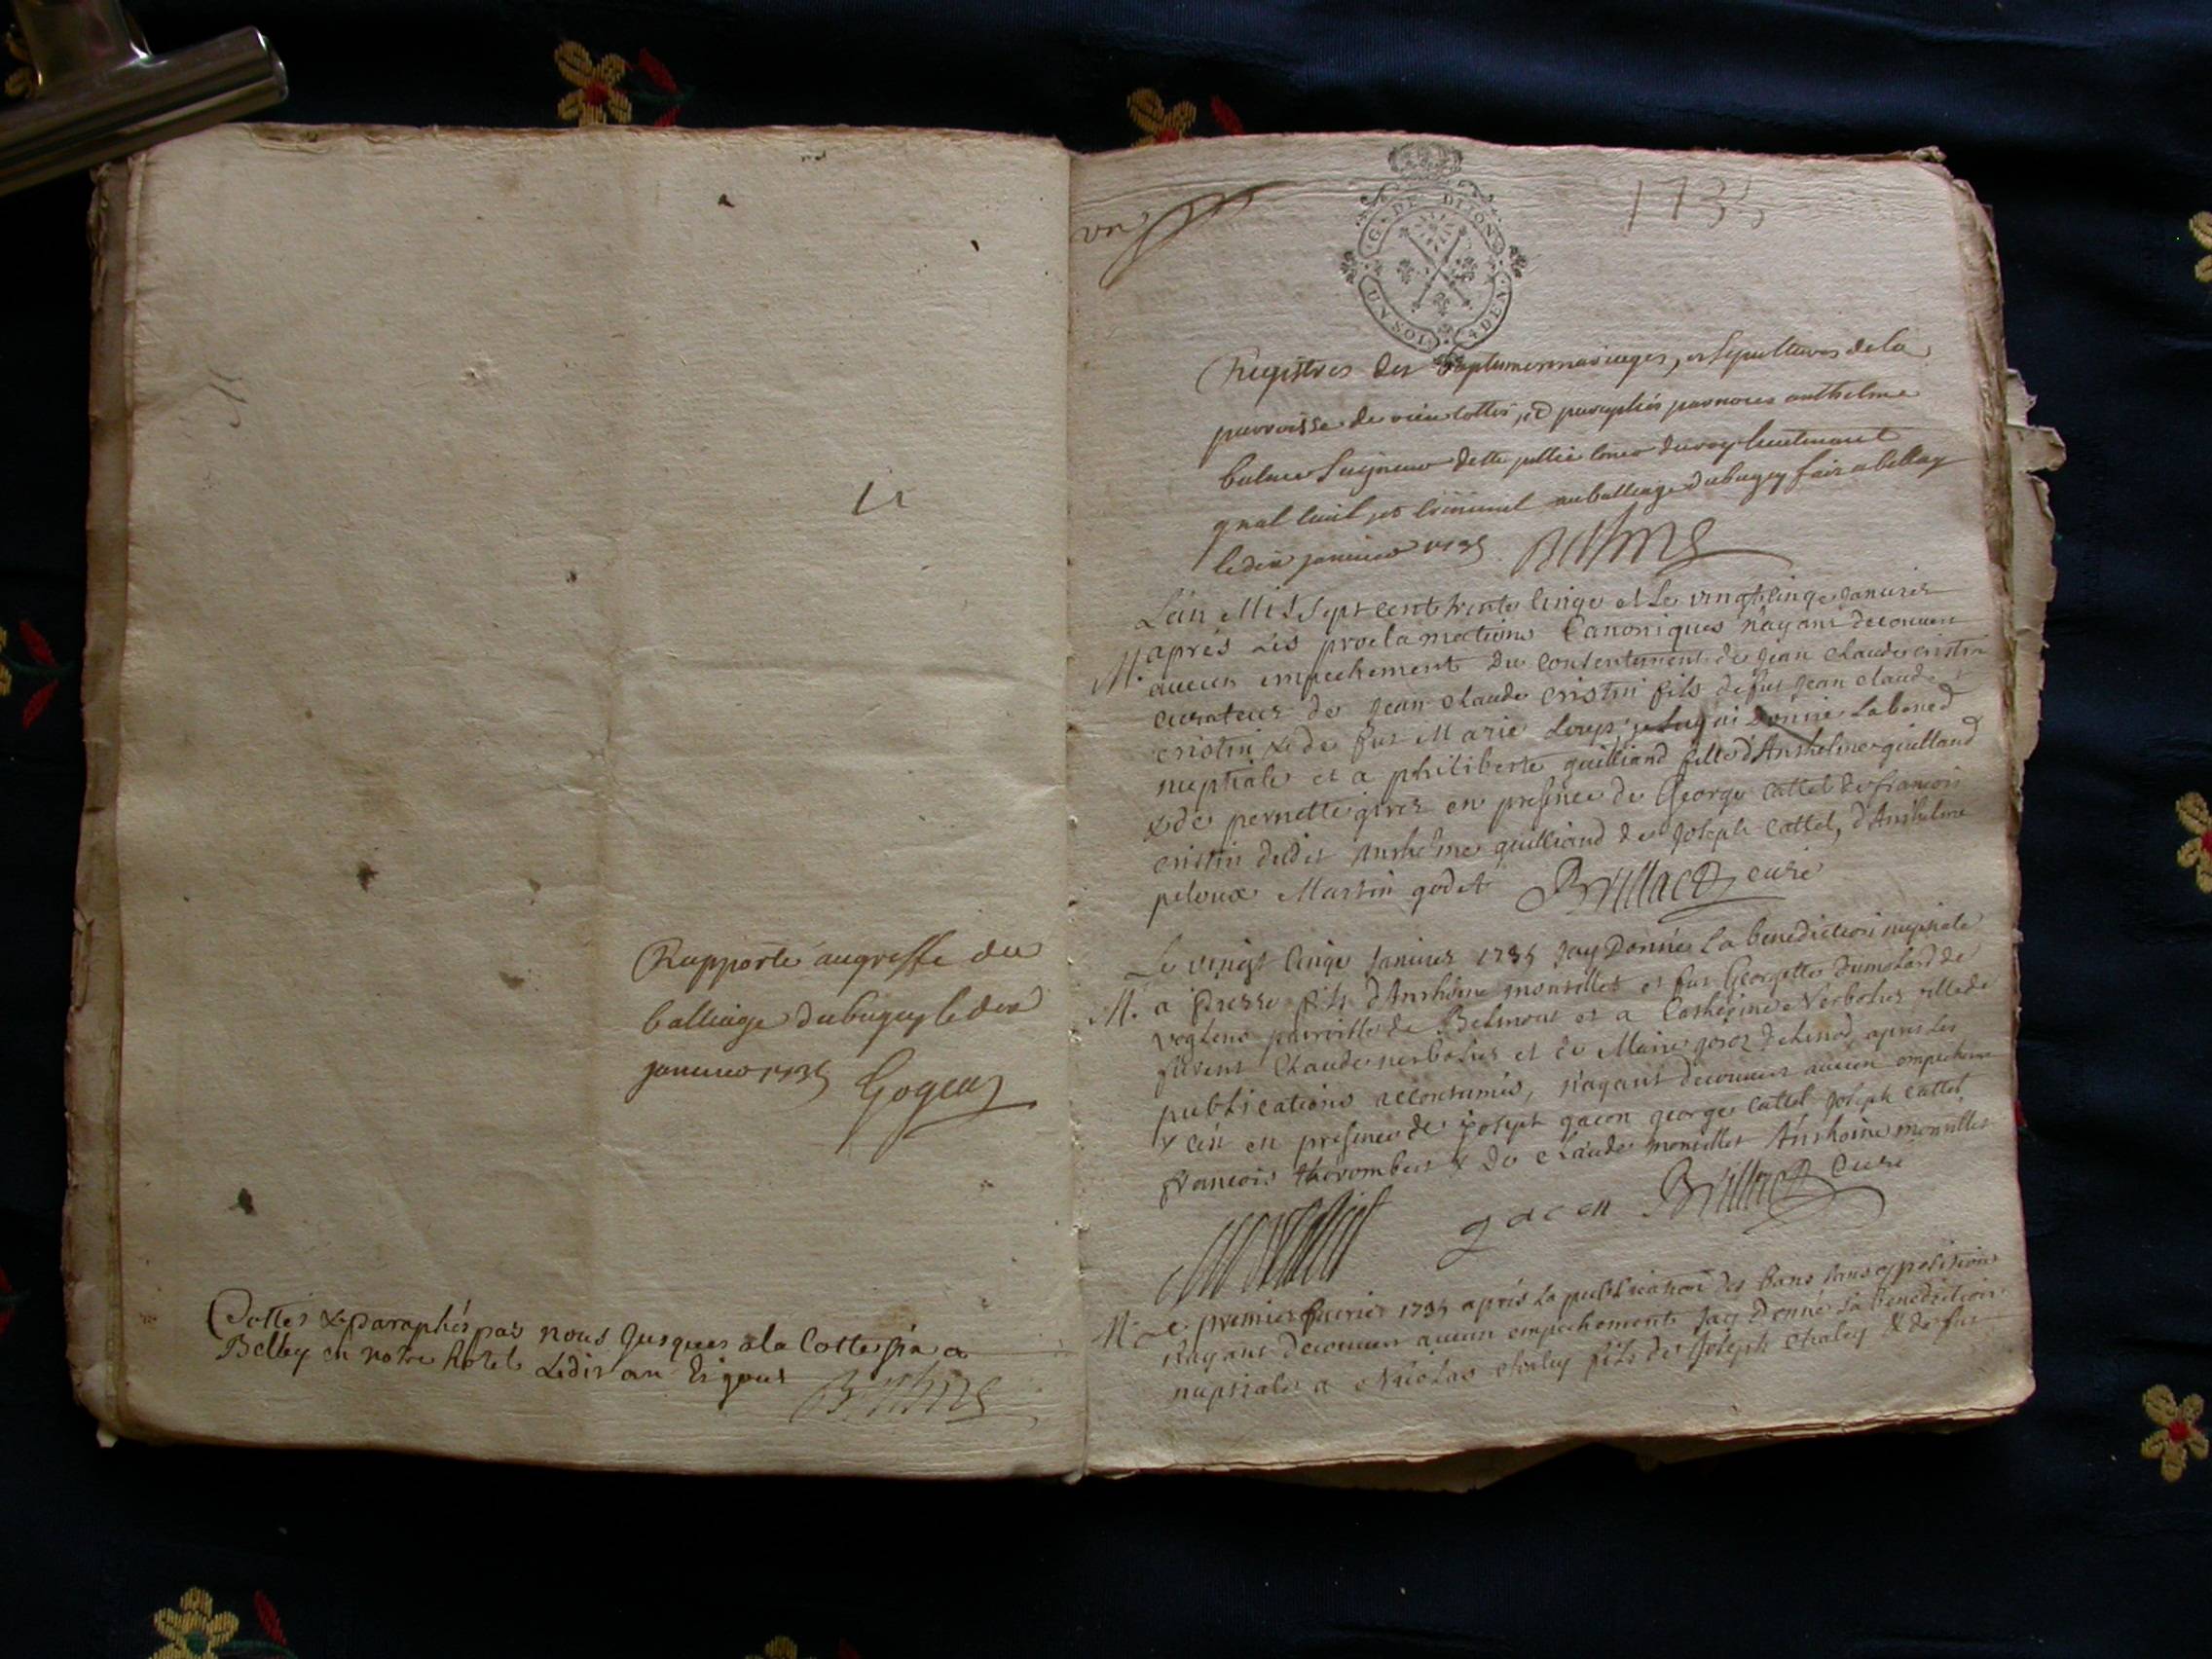 Rapporté au greffe du
balliage du bugey le dix
janvier 1735 Gogeat
Cottés & paraphés par nous Jusques a la Cotte fin a
Belley en notre hotel Ledit an & jour
Balme
un
G. DE DIJON
UN SOL 4 DEN.
1735
Registres des Baptemes mariages, et sepultures de la
parroisse de vieu cottés, et paraphés par nous anthelme
balme Seigneur de Ste jullie coner du roy lieutenant
gnal civil et criminel au balliage du bugey fait a belley
le dix janvier 1735 Balme
L'an Mil sept cent trente cinqe et Le vingt cinqe Januier
M. aprés Les proclamations Canoniques n'ayant decouuert
aucun empechement Du consentement de jean claude cristin
curateur de jean claude cristin fils de fut jean claude
cristin & de fut Marie Loup; je Luy ai Donné La bened
nuptiale et a philiberte guilliand fille d'Anthelme guilland
& de pernette girer en presence de George Cattel de francois
cristin dudit Anthelme guilliand de Joseph Cattel, d'Anthelme
peloux Martin godet Brillact curé
Le vingt Cinqe Januier 1735 Jay Donné La benediction nuptiale
M. a pierre fils d'Anthoine monillet et fut Georgette Dumolard de
Voglens parroisse de Belmont et a Catherine Verbolier fille de
furent Claude verbolier et de Marie goioz de Linod, apres Les
publications accoutumés, n'ayant decouuert aucun empecheme
& cei en presence de joseph gacon george Cattel Joseph Cattel
francois thorombert & De claude monillet Anthoine monillet
Monillet gacon Brillact Curé
M. Le premier feurier 1735 aprés La publication des bans sans opposition
Nayant decouuert aucun empechement Jay Donné La benediction
nuptiale a Nicolas chaley fils de Joseph chaley & de fut